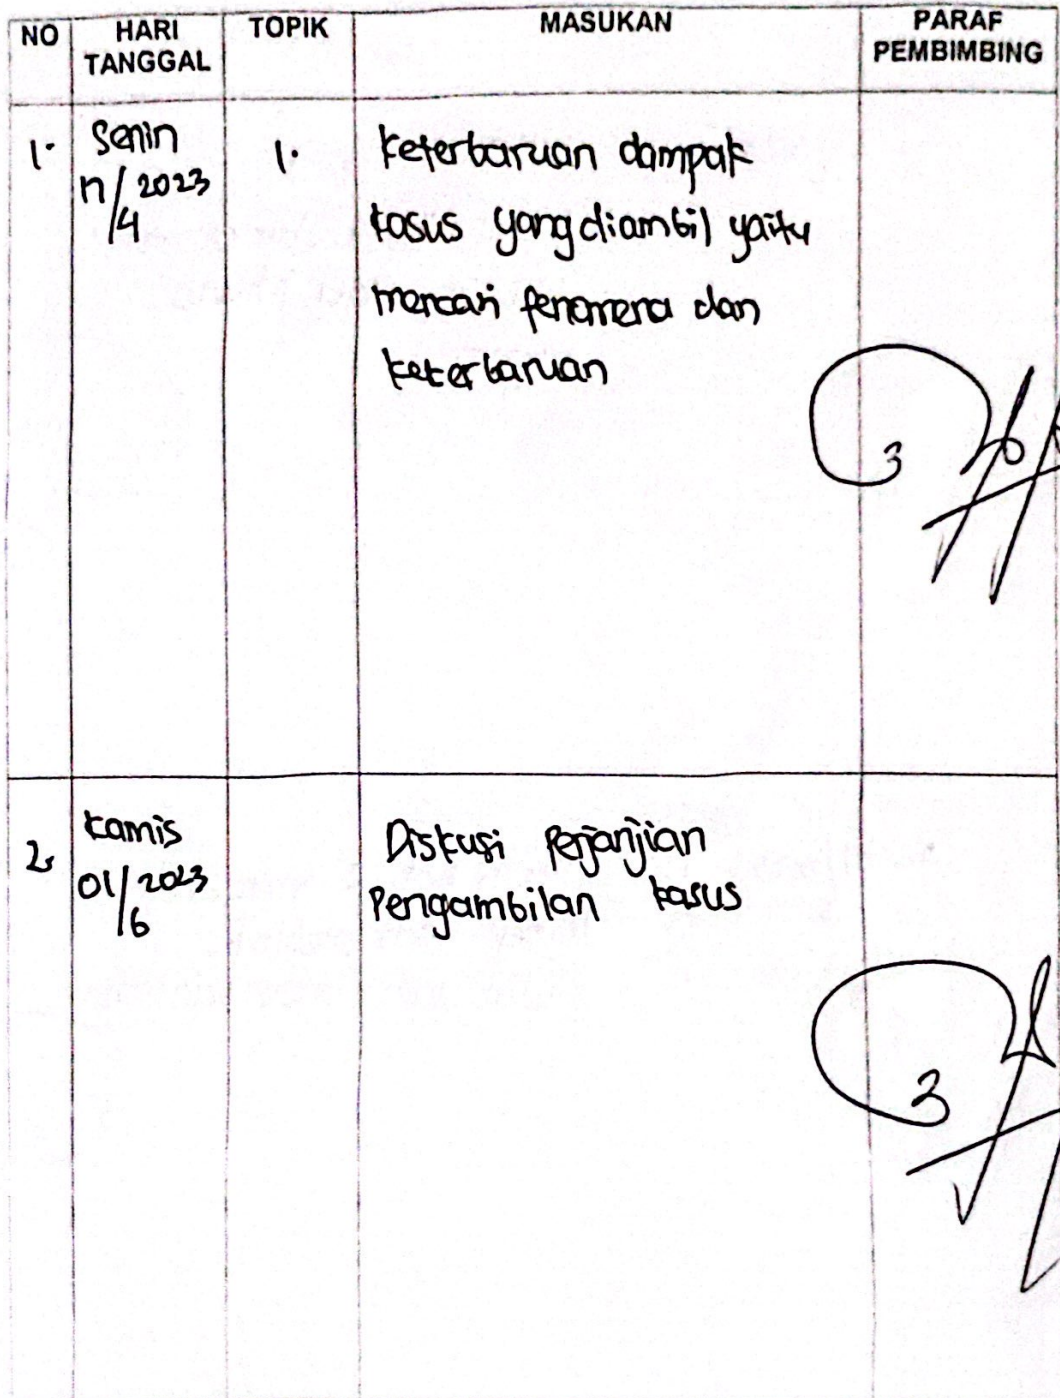 NO HARI TANGGAL TOPIK MASUKAN PARAF PEMBIMBING
1. Senin 1. Keterbaruan dampak
17/2023
/4
kasus yang diambil yaitu
mencari fenomena dan
keterbaruan
3
2. Kamis Diskusi Perjanjian
01/2023 Pengambilan kasus
/6
3